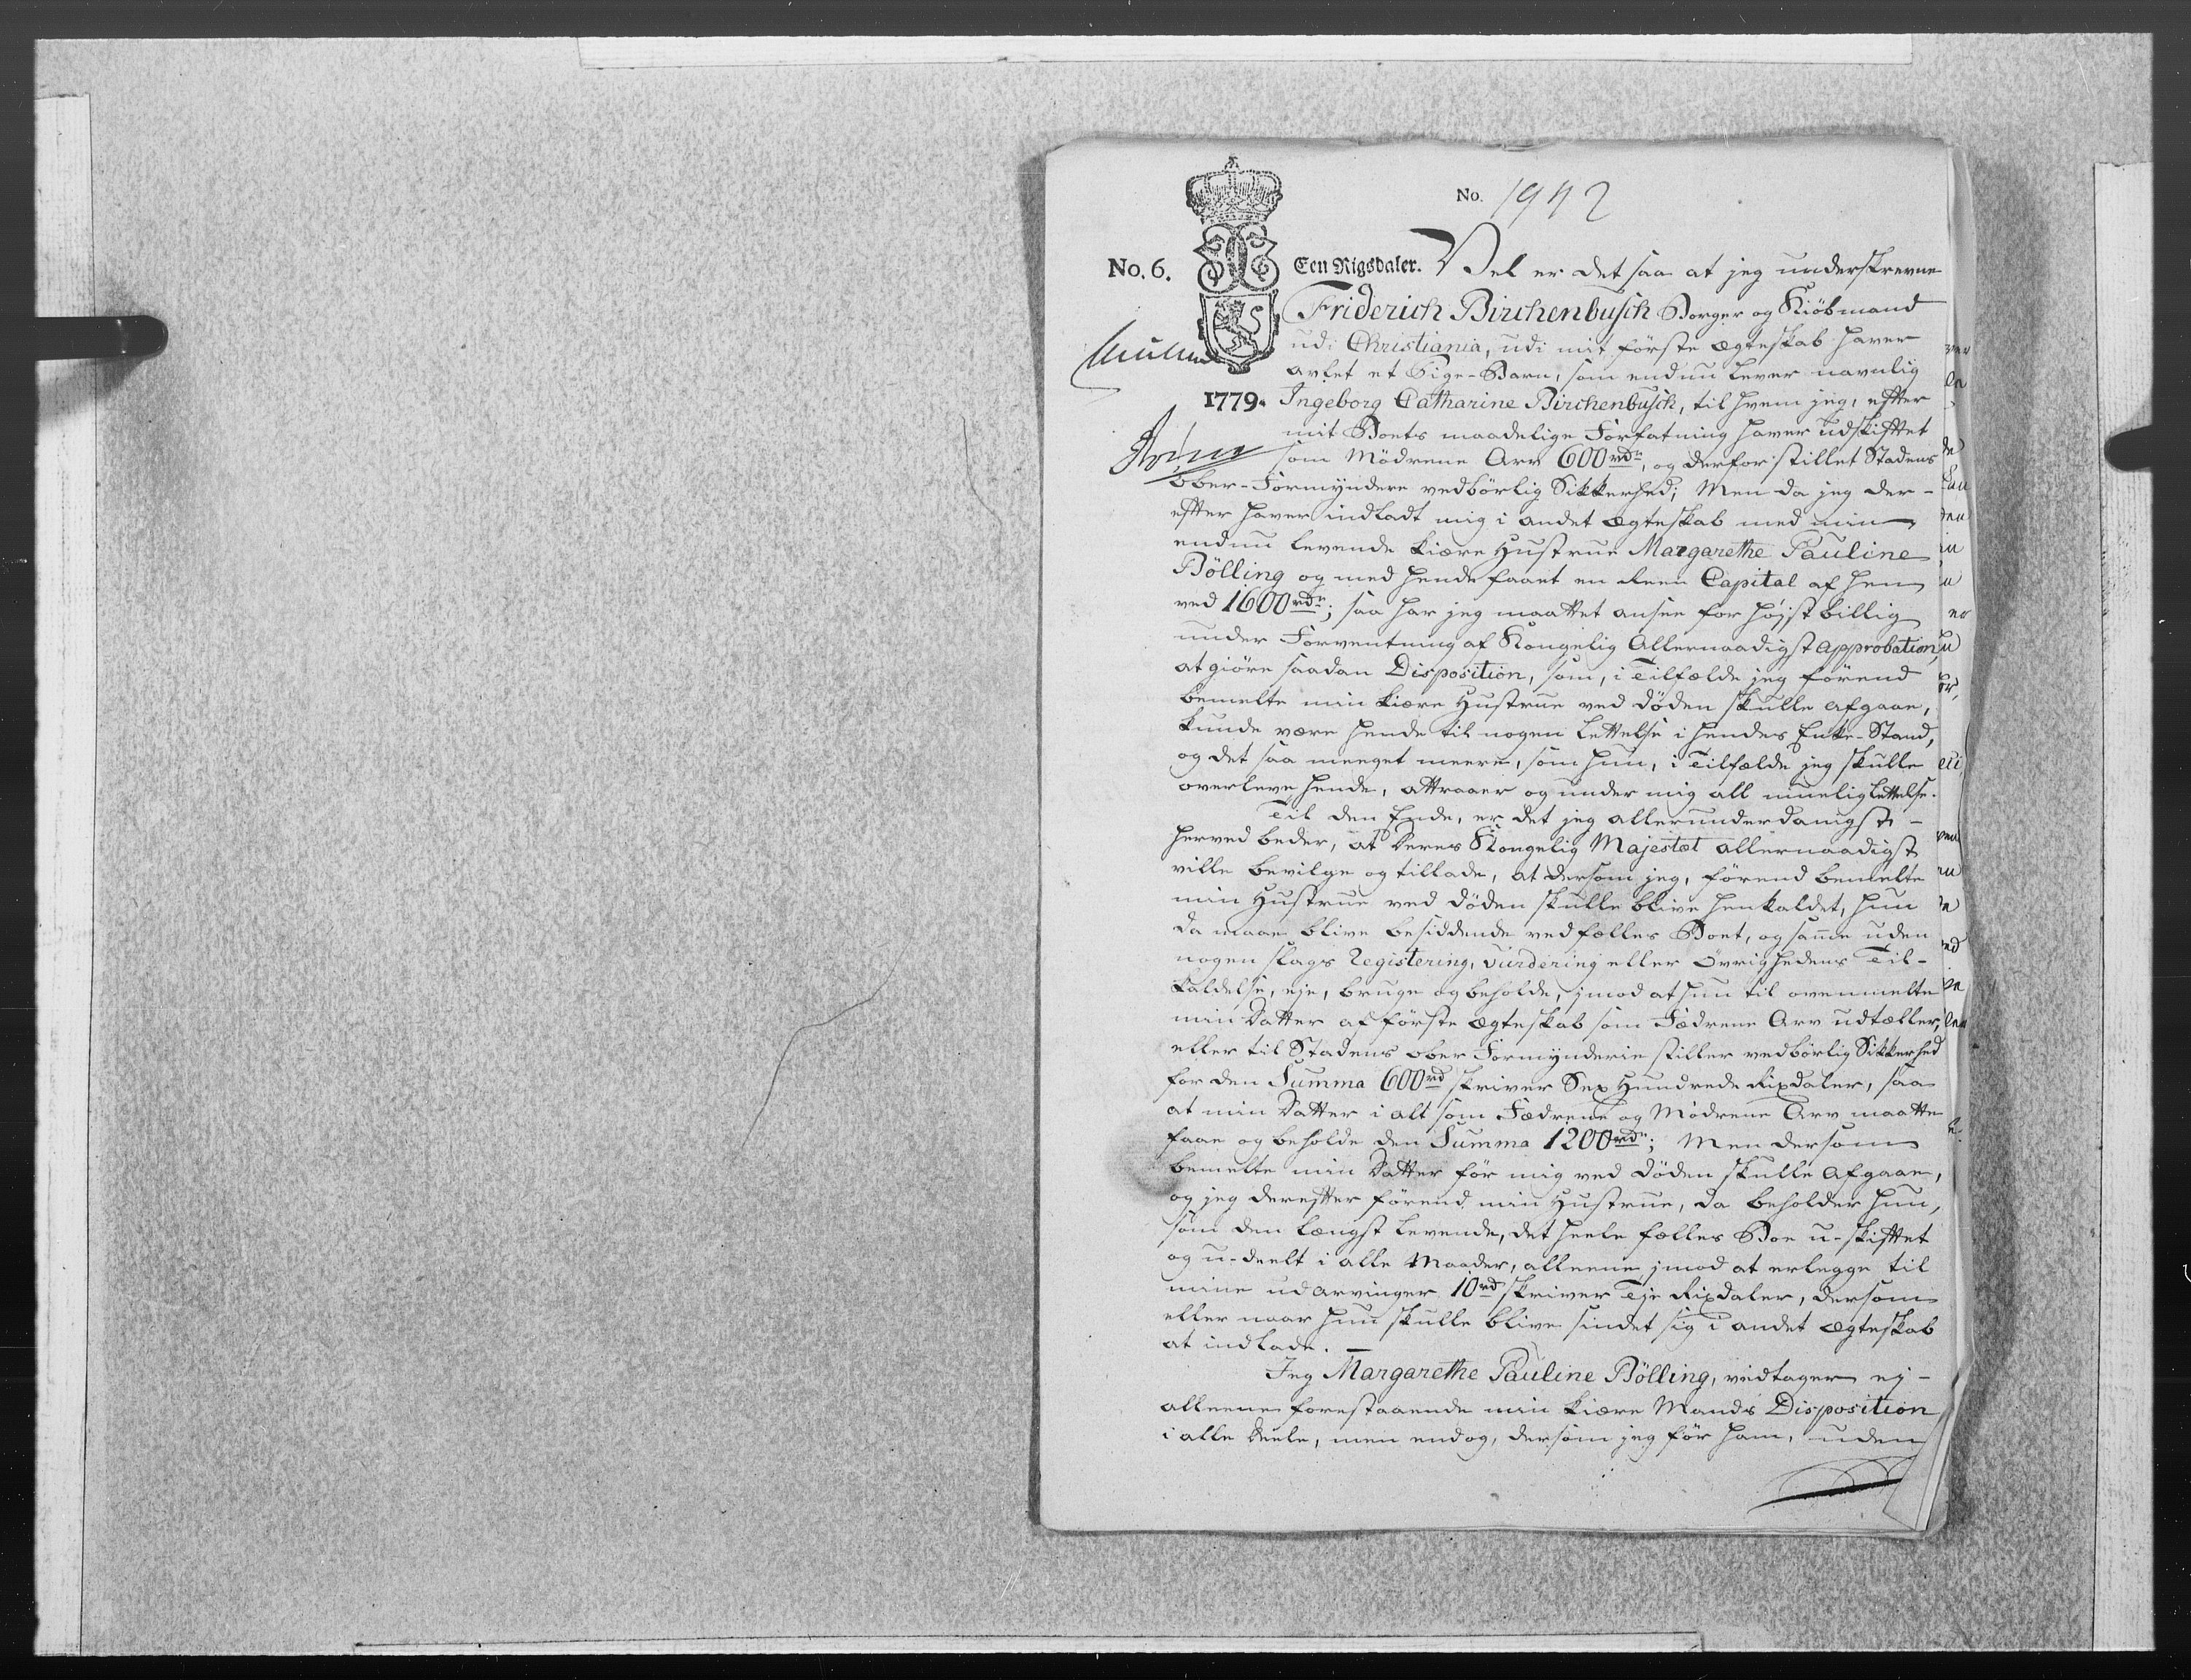 No. 1942
No. 6. Een Rigsdaler. Vel er det saa at jeg underskrevne
Friderich Birchenbusch Borger og Kiöbmand
udi Christiania, udi mit første Ægteskab haver
avlet et Pige-Barn, som endnu lever navnlig
1779. Ingeborg Catharine Birchenbusch, til hvem jeg, efter
mit Boets maadelige Forfatning haver udskiftet
som Mödrene Arv 600rdr, og derfor stillet Stadens
Ober-Formyndere vedbörlig Sikkerhed; Men da jeg der-
efter haver indladt mig i andet Ægteskab med min
endnu levende kiære Hustrue Margarethe Pauline
Bölling og med hende faaet en Reen Capital af hen
ved 1600rdr; saa har jeg maattet ansee for höjst billig
under Forventning af Kongelig Allernaadigst Approbation,
at giöre saadan Disposition, som, i Tilfælde jeg förend
bemelte min kiære Hustrue ved Döden skulle afgaae,
kunde være hende til nogen Lettelse i hendes Enke-Stand,
og det saa meeget meere, som hun, i Tilfælde jeg skulle
overleve hende, attraaer og under mig all muelig Lettelse.
Til den Ende, er det jeg allerunderdanigst
herved beder, at Deres Kongelig Majestæt allernaadigst
ville bevilge og tillade, at dersom jeg, förend bemelte
min Hustrue ved Döden skulle blive henkaldet, hun
da maae blive besiddende ved fælles Boet, og samme uden
nogen slags Registering, Vurdering eller Övrighedens Til-
kaldelse, eje, bruge og beholde, imod at hun til ovenmelte
min Datter af förste Ægteskab som Fædrene Arv udtæller,
eller til Stadens Ober Formynderie stiller vedbörlig Sikkerhed
for den Summa 600rd skriver Sex Hundrede Rixdaler, saa
at min Datter i alt som Fædrene og Mödrene Arv maatte
faae og beholde den Summa 1200rdr; Men dersom
bemelte min Datter för mig ved Döden skulle afgaae,
og jeg derefter förend min Hustrue, da beholder hun,
som den længst levende, det heele fælles Boe u-skiftet
og u-deelt i alle Maader, alleene imod at erlegge til
mine Udarvinger 10rd skriver Tje Rixdaler, dersom
eller naar hun skulle blive sindet sig i andet Ægteskab
at indlade.
Jeg Margarethe Pauline Bölling, vedtager ej
alleene forestaaende min kiære Mands Disposition
i alle Deele, men endog, dersom jeg för ham, uden